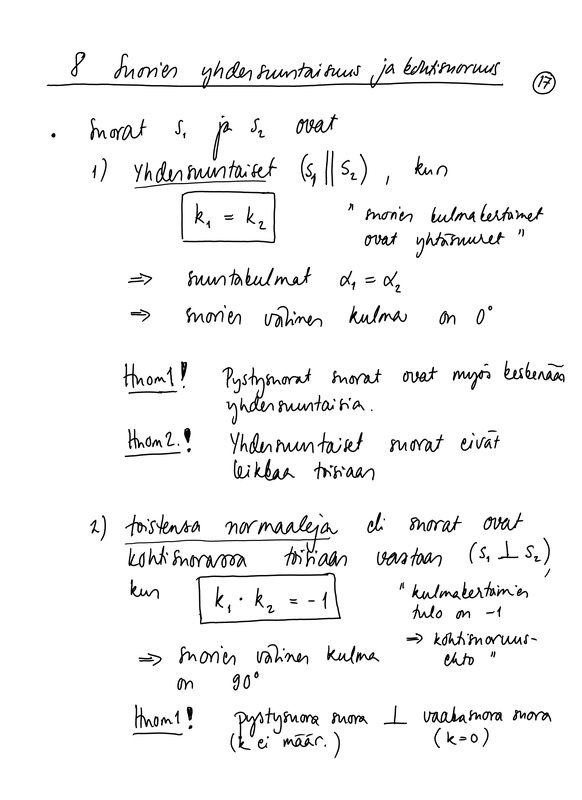 8 Suorien yhdensuuntaisuus ja kohtisuoruus
17
• Suorat s₁ ja s₂ ovat
1) Yhdensuuntaiset (s₁ || s₂), kun
k₁ = k₂
" suorien kulmakertoimet
ovat yhtäsuuret "
⇒ suuntakulmat α₁ = α₂
⇒ suorien välinen kulma on 0°
Huom1! Pystysuorat suorat ovat myös keskenään
yhdensuuntaisia.
Huom2.! Yhdensuuntaiset suorat eivät
leikkaa toisiaan
2) toistensa normaaleja eli suorat ovat
kohtisuorassa toisiaan vastaan (s₁ ⊥ s₂),
kun k₁ · k₂ = -1
" kulmakertoimien
tulo on -1
⇒ kohtisuoruus-
ehto "
⇒ suorien välinen kulma
on 90°
Huom1! pystysuora suora ⊥ vaakasuora suora
(k ei määr.) (k=0)